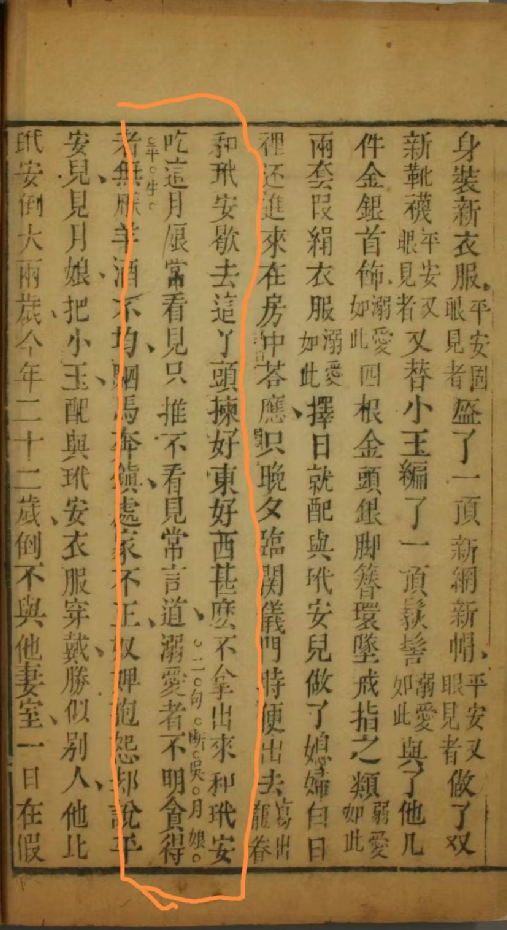 身裝新衣服眼見者平安固盔了一頂新網新帽眼見者平安又做了双
新靴襪眼見者平安又又替小玉編了一頂䯼髻如此溺愛與了他几
件金銀首飾如此溺愛四根金頭銀脚簪環墜戒指之類如此溺愛
兩套段絹衣服如此溺愛擇日就配與玳安兒做了媳婦白日
裡还進來在房中荅應只晚夕臨関儀門時便出去
和玳安歇去這丫頭揀好東好西甚麽不拿出來和玳安
吃這月娘常看見只推不看見常言道溺愛者不明貪得
者無厭羊酒不均駟馬奔鎮處家不正奴婢抱怨却說平
安兒見月娘把小玉配與玳安衣服穿戴勝似别人他比
玳安倒大兩歲今年二十二歲倒不與他妻室一日在假